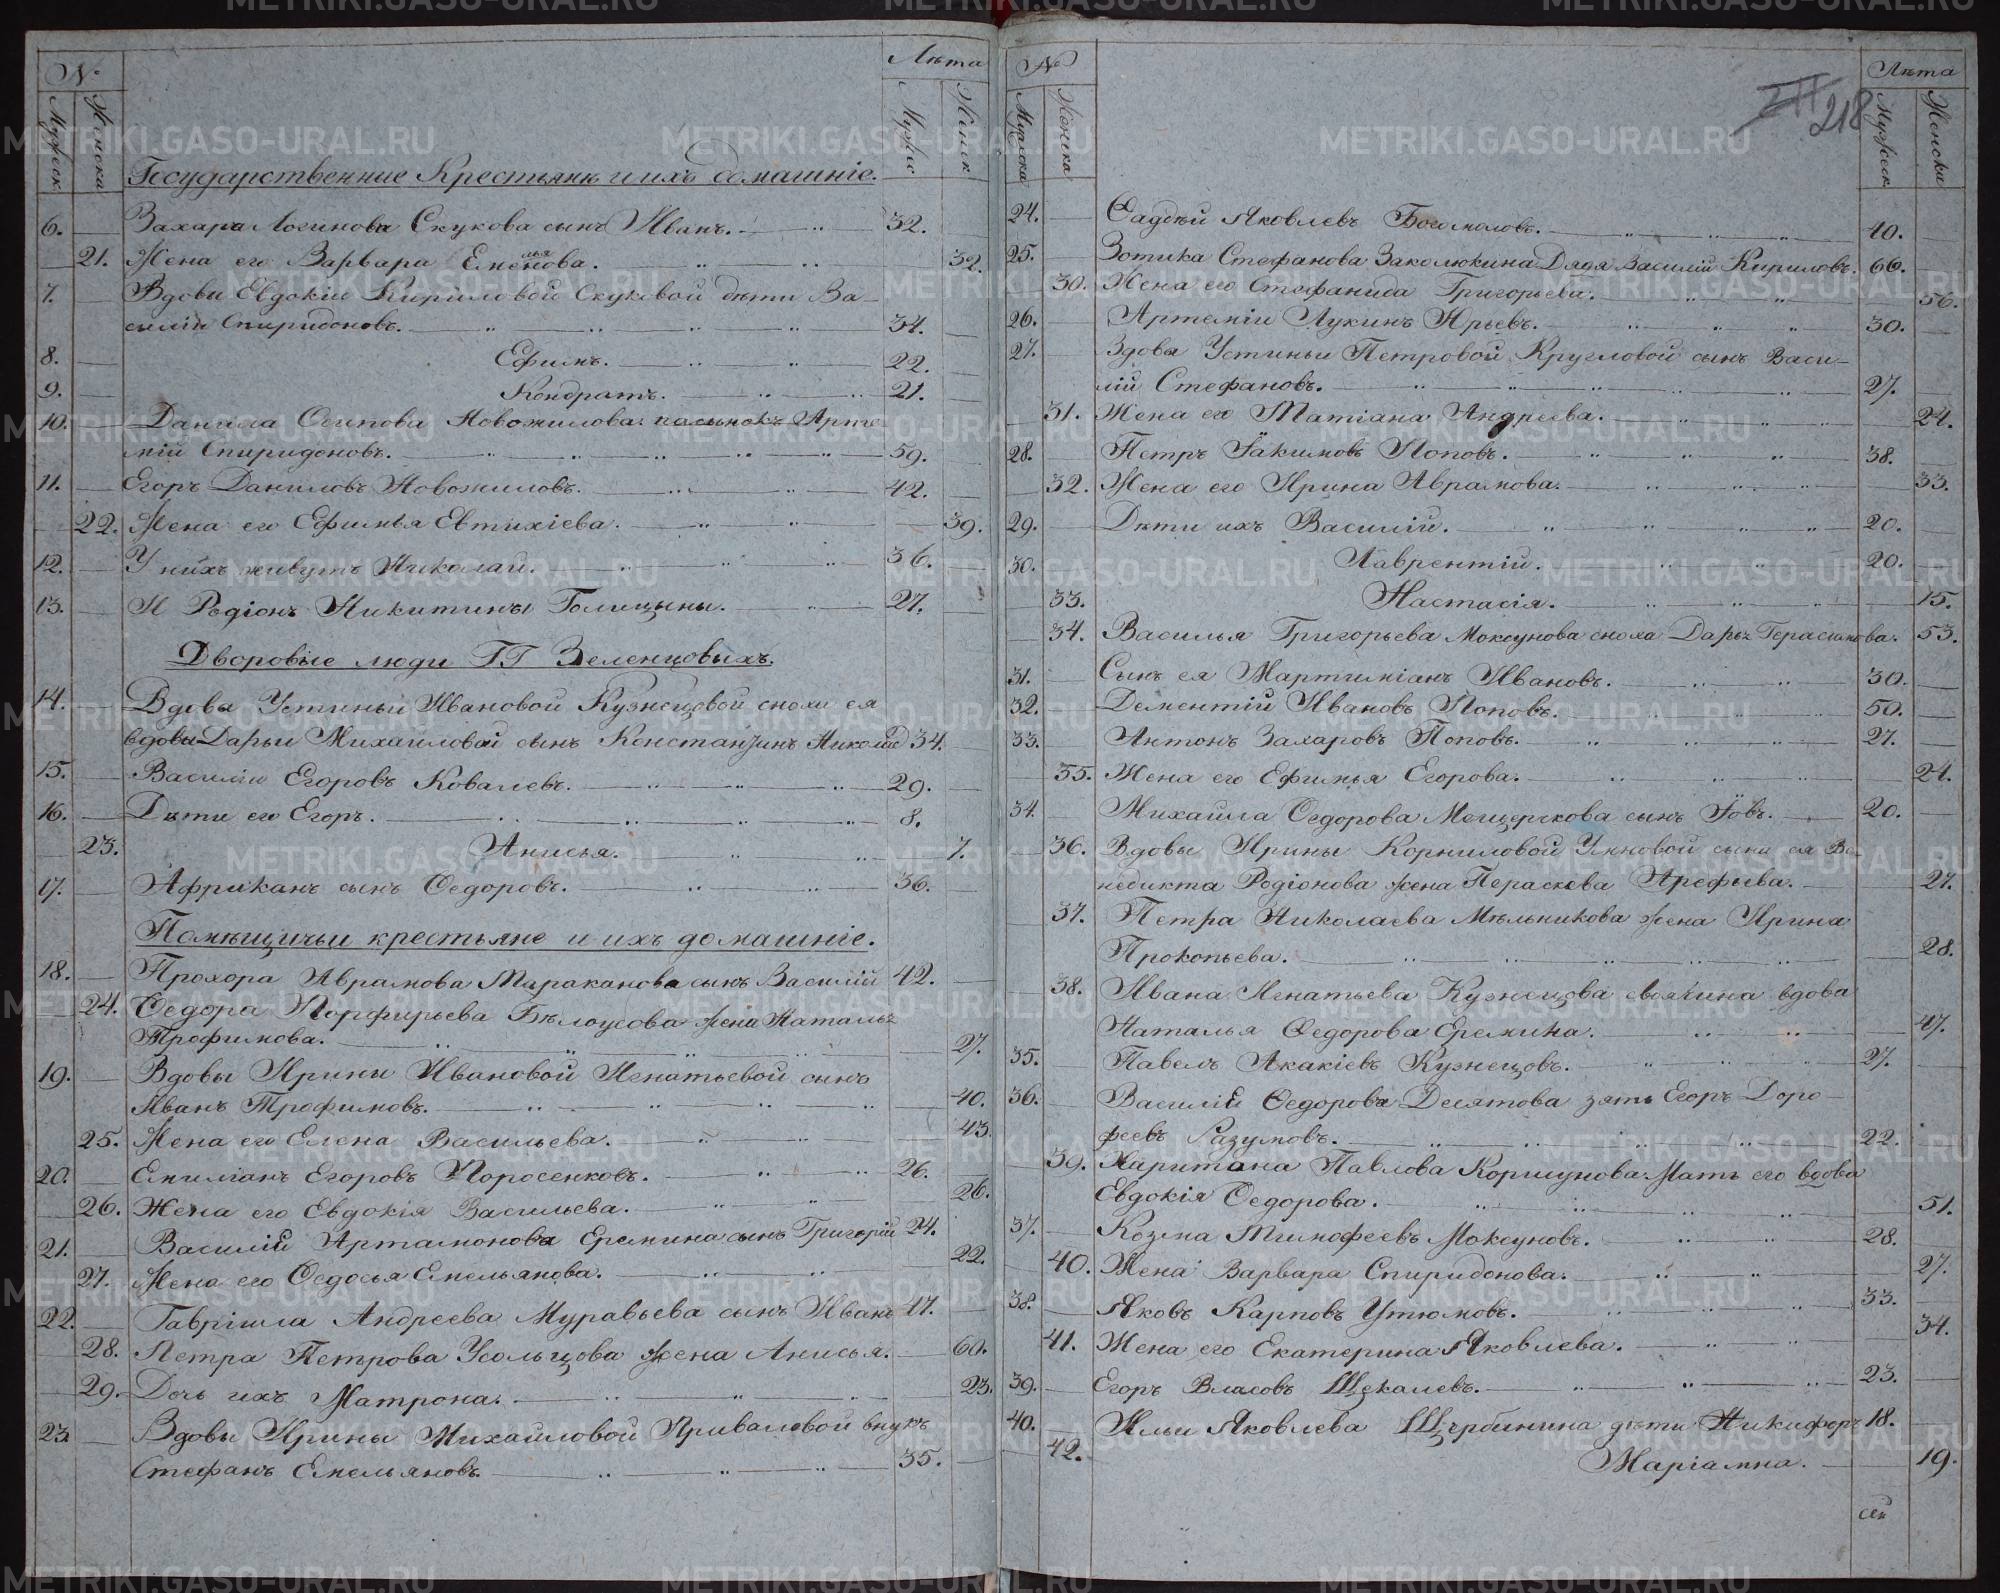 № Лѣта
Мужеск Женска Мужес Женск
Государственные Крестьянѣ и ихъ домашніе.
6. Захара Логинова Скукова сынъ Иванъ. 32.
21. Жена его Варвара Еменова. 32.
лья
7. Вдовы Евдокіи Кириловой Скуковой дѣти Ва-
силій Спиридоновъ. 34.
8. Ефимъ. 22.
9. Кондратъ. 21.
10. Данила Осипова Новожилова пасынокъ Арте
мій Спиридоновъ. 59.
11. Егоръ Даниловъ Новожиловъ. 42.
22. Жена его Ефимья Евтихіева. 39.
12. У нихъ живутъ Николай. 36.
13. И Родіонъ Никитины Голицыны. 27.
Дворовые люди ГГ Зеленцовыхъ.
14. Вдовы Устиньи Ивановой Кузнецовой снохи ея
вдовы Дарьи Михайловой сынъ Константинъ Никола 34.
15. Василій Егоровъ Ковалевъ. 29.
16. Дѣти его Егоръ. 8.
23. Анисья. 7.
17. Африканъ сынъ Ѳедоровъ. 36.
Помѣщичьи крестьяне и ихъ домашніе.
18. Прохора Аврамова Мараканова сынъ Василій 42.
24. Ѳедора Порфирьева Бѣлоусова жена Наталья
Трофимова. 27.
19. Вдовы Ирины Ивановой Игнатьевой сынъ
Иванъ Трофимовъ. 40.
25. Жена его Елена Васильева. 43.
20. Емиліанъ Егоровъ Поросенковъ. 26.
26. Жена его Евдокія Васильева. 26.
21. Василій Артамонова Еремина сынъ Григорій 24.
27. Жена его Ѳедосья Емельянова. 22.
22. Гавріила Андреева Муравьева сынъ Иванъ 17.
28. Петра Петрова Усольцова жена Анисья. 60.
29. Дочь ихъ Матрона. 23.
23. Вдовы Ирины Михайловой Приваловой внукъ
Стефанъ Емельяновъ. 35.
№ Лѣта
Мужеска Женска Мужеск Женска
218
24. Ѳаддѣй Яковлевъ Богомоловъ. 40.
25. Зотика Стефанова Заколюкина Дядя Василій Кириловъ. 66.
30. Жена его Стефанида Григорьева. 56.
26. Артемій Лукинъ Юрьевъ. 30.
27. Вдова Устиньи Петровой Кругловой сынъ Васи-
лій Стефановъ. 27.
31. Жена его Матіана Андреева. 24.
28. Петръ Іакимовъ Поповъ. 38.
32. Жена его Ирина Аврамова. 33.
29. Дѣти ихъ Василій. 20.
30. Лаврентій. 20.
33. Настасія. 15.
34. Василья Григорьева Моксунова сноха Дарья Герасимова. 53.
31. Сынъ ея Мартиміанъ Ивановъ. 30.
32. Дементій Ивановъ Поповъ. 50.
33. Антонъ Захаровъ Поповъ. 27.
35. Жена его Ефимья Егорова. 24.
34. Михаила Ѳедорова Мещерякова сынъ Іовъ. 20.
36. Вдовы Ирины Корниловой Уиновой сына ея Ве-
недикта Родіонова жена Параскева Арефьева. 27.
37. Петра Николаева Мѣльникова жена Ирина
Прокопьева. 28.
38. Ивана Игнатьева Кузнецова своячина вдова
Наталья Ѳедорова Еремина. 47.
35. Павелъ Акакіевъ Кузнецовъ. 27.
36. Василій Ѳедорова Десятова зять Егоръ Доро-
феевъ Разумовъ. 22.
39. Харитона Павлова Коршунова Мать его вдова
Евдокія Ѳедорова. 51.
37. Козма Тимофеевъ Моксуновъ. 28.
40. Жена Варвара Спиридонова. 27.
38. Яковъ Карповъ Утюмовъ. 33.
41. Жена его Екатерина Яковлева. 34.
39. Егоръ Власовъ Щекалевъ. 23.
40. Ильи Яковлева Щербинина дѣти Никифоръ 18.
42. Маріамна. 19.